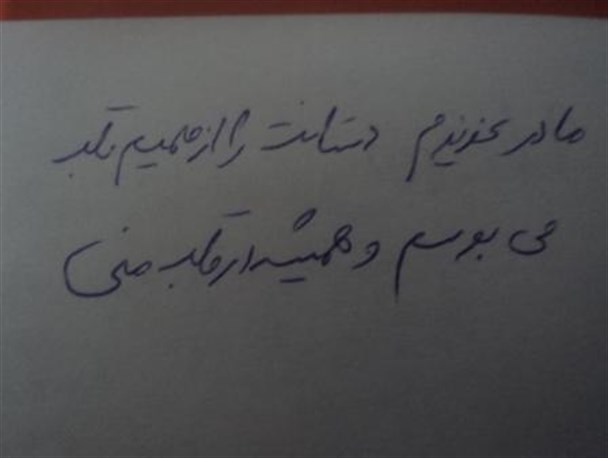 مادر عزیزم دستانت را از صمیم قلب
می بوسم و همیشه در قلب منی